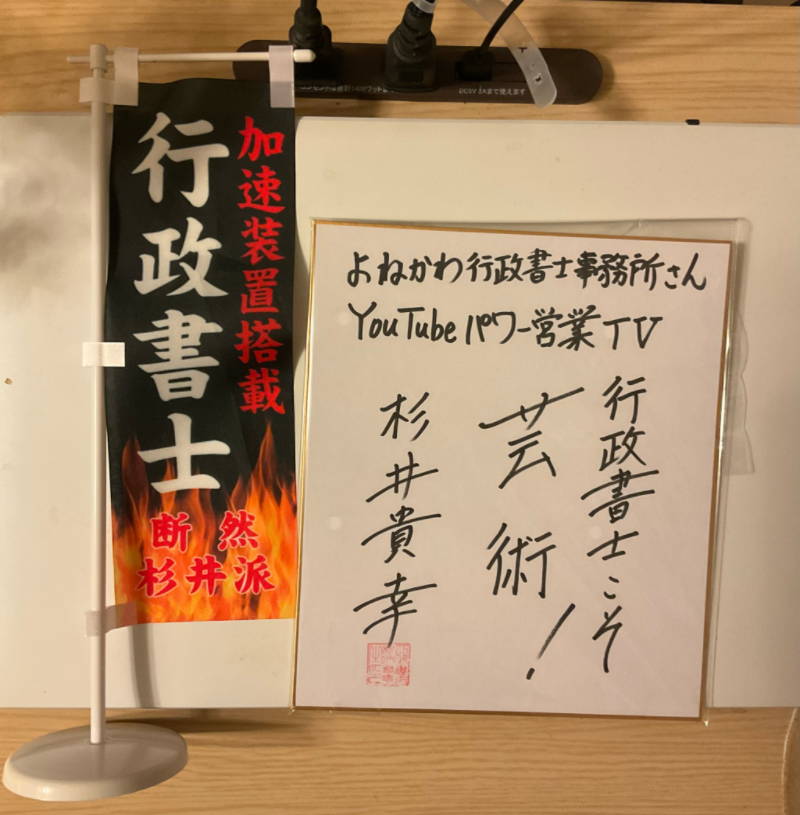 加速装置搭載
行政書士
断然
杉井派
よねかわ行政書士事務所さん
YouTubeパワー営業TV
行政書士こそ
芸術!
杉井貴幸
DC5V 2Aまで使えます